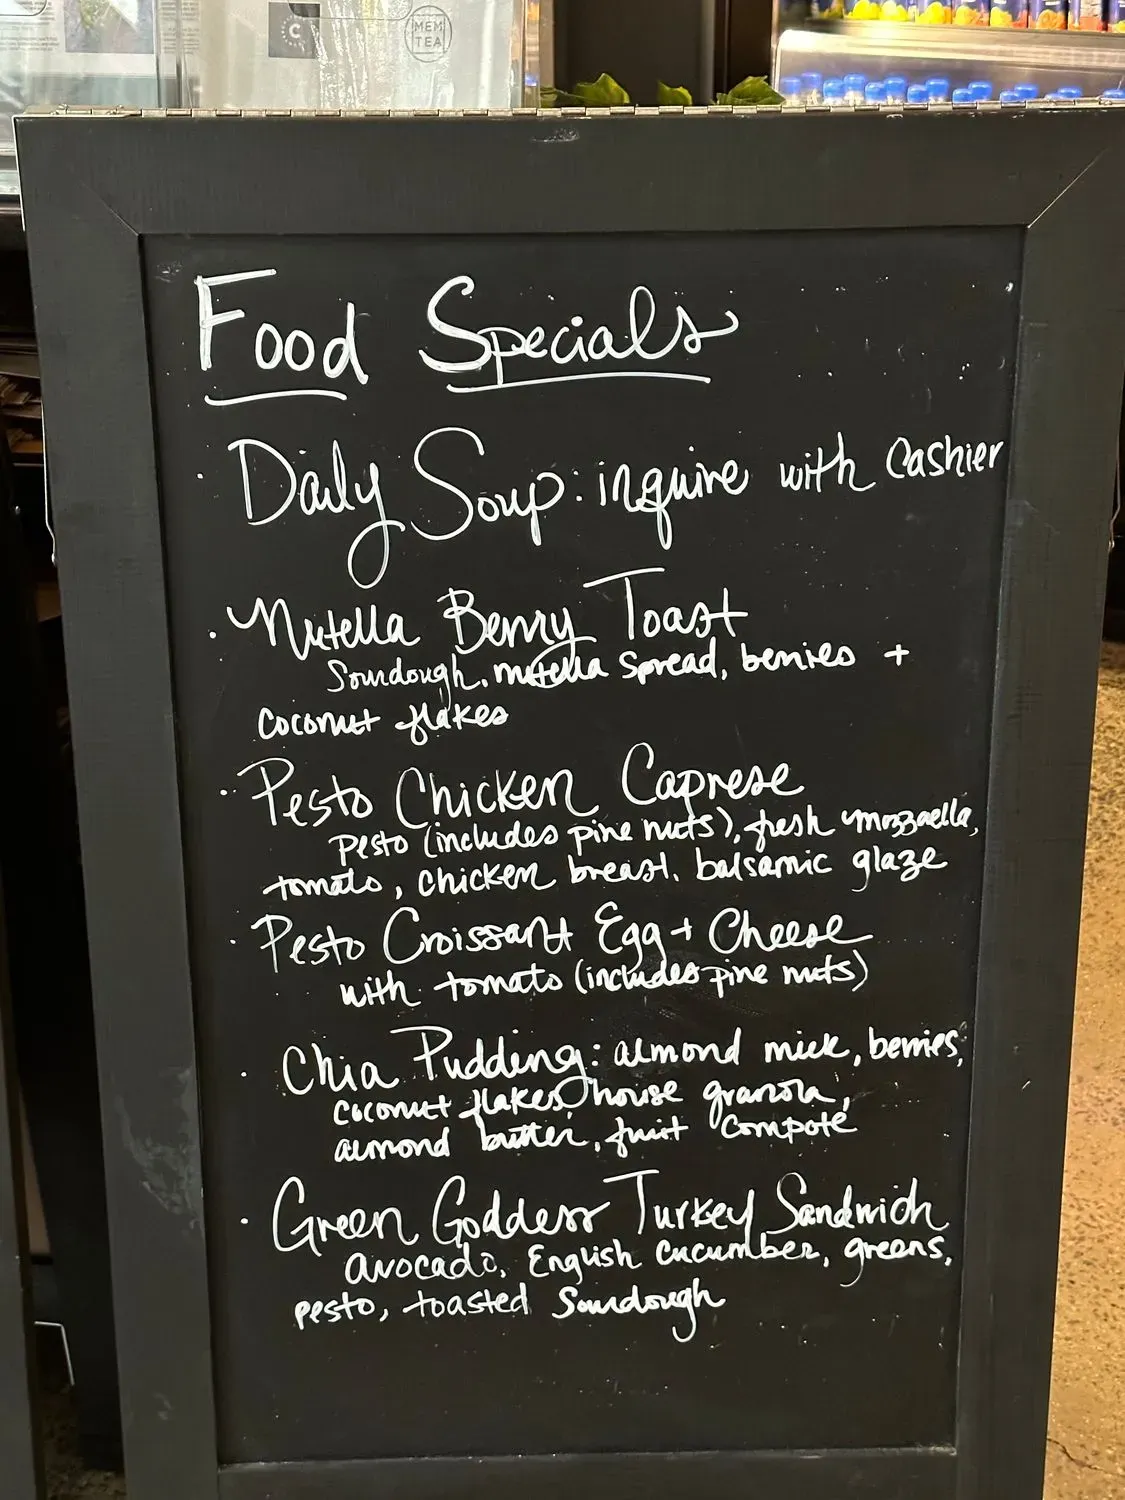 C
MEM
TEA
Food Specials
· Daily Soup: inquire with Cashier
· Nutella Berry Toast
Sourdough, nutella spread, berries +
coconut flakes
· Pesto Chicken Caprese
pesto (includes pine nuts), fresh mozzaella,
tomato, chicken breast, balsamic glaze
· Pesto Croissant Egg + Cheese
with tomato (includes pine nuts)
· Chia Pudding: almond milk, berries,
coconut flakes, house granola,
almond butter, fruit compote
· Green Goddess Turkey Sandwich
Avocado, English cucumber, greens,
pesto, toasted Sourdough